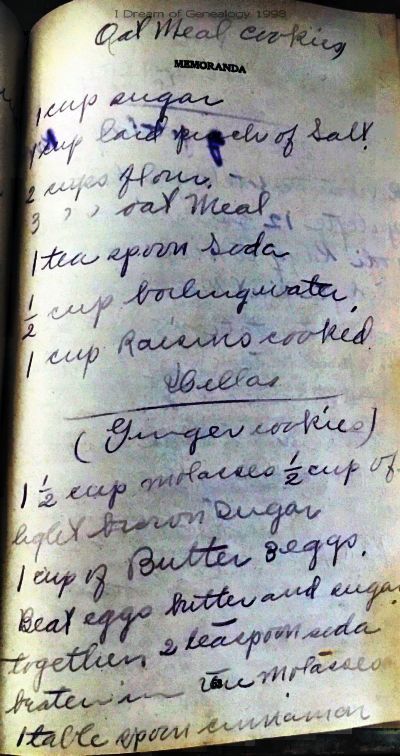 I Dream of Genealogy 1998
Oat Meal cookies
MEMORANDA
1 cup sugar
1 cup lard pinch of Salt.
2 cups flour.
3 " " oat Meal
1 tea spoon Soda
1/2 cup boiling water.
1 cup Raisins cooked.
Dellas
(Ginger cookies)
1 1/2 cup molasses 1/2 cup of
light brown Sugar
1 cup of Butter 3 eggs.
Beat eggs butter and sugar
together, 2 teaspoon soda
beaten in the molasses
1 table spoon cinnamon